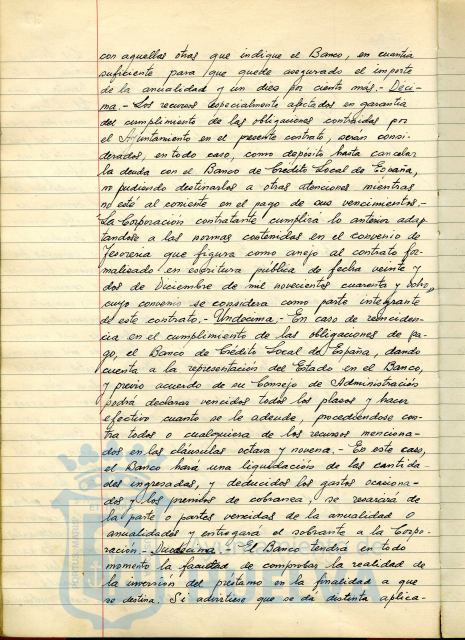 con aquellas otras que indique el Banco, en cuantía
suficiente para que quede asegurado el importe
de la anualidad y un diez por ciento más.- Déci-
ma.- Los recursos especialmente afectados en garantía
del cumplimiento de las obligaciones contraidas por
el Ayuntamiento en el presente contrato, serán consi-
derados, en todo caso, como depósito hasta cancelar
la deuda con el Banco de Crédito Local de España,
no pudiendo destinarlos a otras atenciones mientras
no esté al corriente en el pago de sus vencimientos.-
La Corporación contratante cumplirá lo anterior adap-
tandose a las normas contenidas en el convenio de
Tesoreria que figura como anejo al contrato for-
malizado en escritura pública de fecha veinte y
dos de Diciembre de mil novecientos cuarenta y ocho,
cuyo convenio se considera como parte integrante
de este contrato.- Undecima.- En caso de reinciden-
cia en el cumplimiento de las obligaciones de pa-
go, el Banco de Crédito Local de España, dando
cuenta a la representación del Estado en el Banco,
y previo acuerdo de su Consejo de Administración
podrá declarar vencidos todos los plazos y hacer
efectivo cuanto se le adeude, procediendose con-
tra todos o cualquiera de los recursos menciona-
dos en las cláusulas octava y novena.- En este caso,
el Banco hará una liquidación de las cantida-
des ingresadas, y deducidos los gastos ocasiona-
dos y los premios de cobranza, se resarcirá de
la parte o partes vencidas de la anualidad o
anualidades y entregará el sobrante a la Corpo-
ración.- Duodecima.- El Banco tendrá en todo
momento la facultad de comprobar la realidad de
la inversión del préstamo en la finalidad a que
se destina. Si advirtiese que se dá distinta aplica-